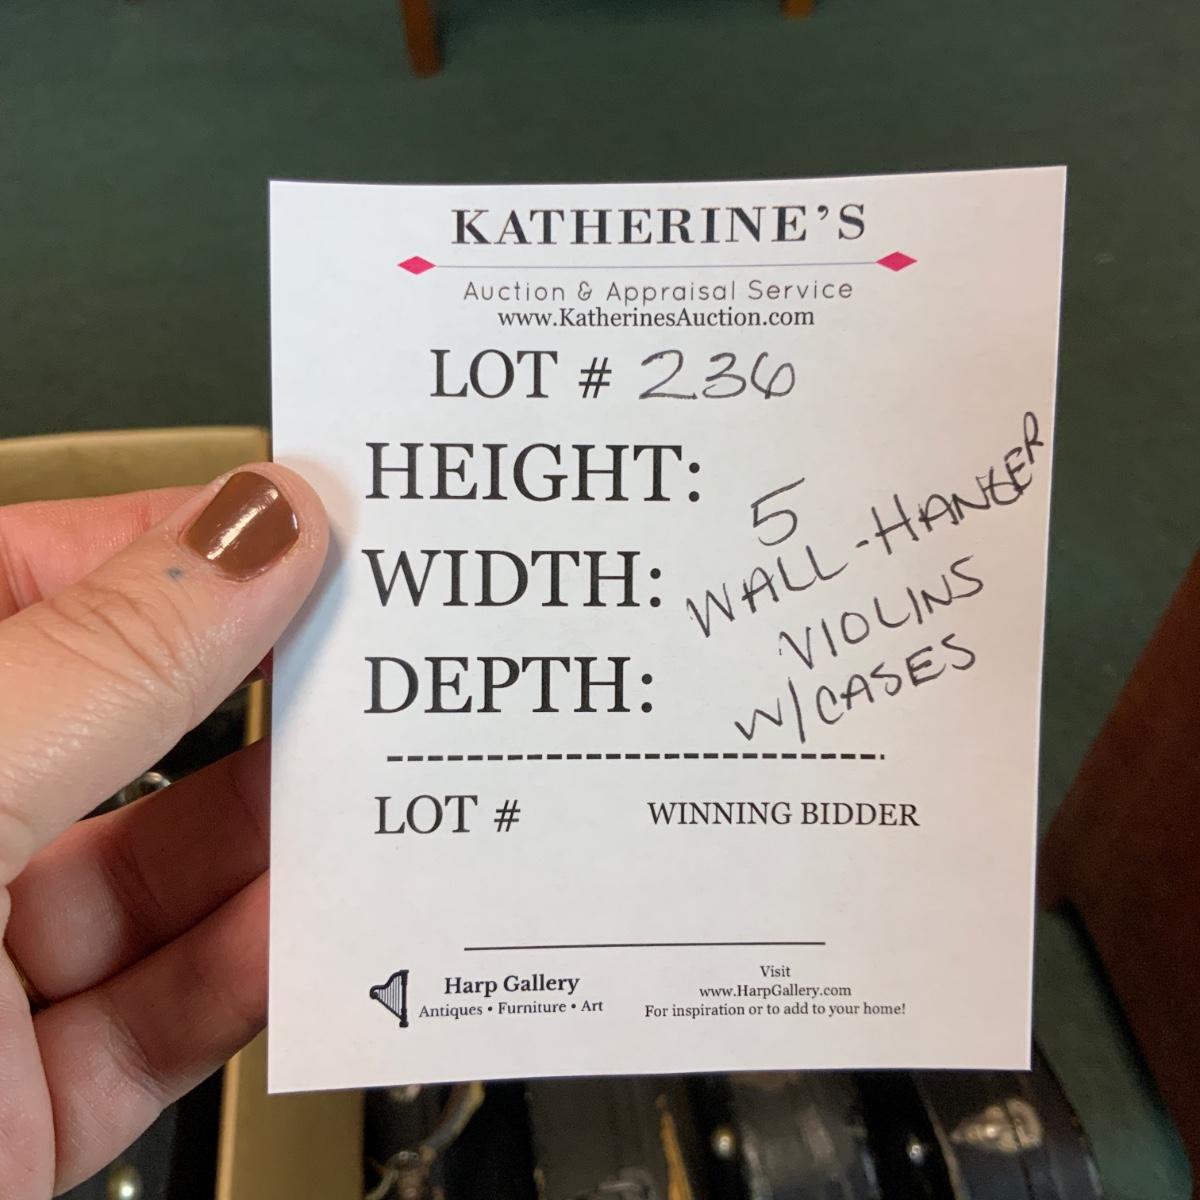 KATHERINE'S
Auction & Appraisal Service
www.KatherinesAuction.com
LOT # 236
HEIGHT:
WIDTH:
DEPTH:
5
WALL-HANGER
VIOLINS
W/CASES
LOT #
WINNING BIDDER
Harp Gallery
Antiques • Furniture • Art
Visit
www.HarpGallery.com
For inspiration or to add to your home!